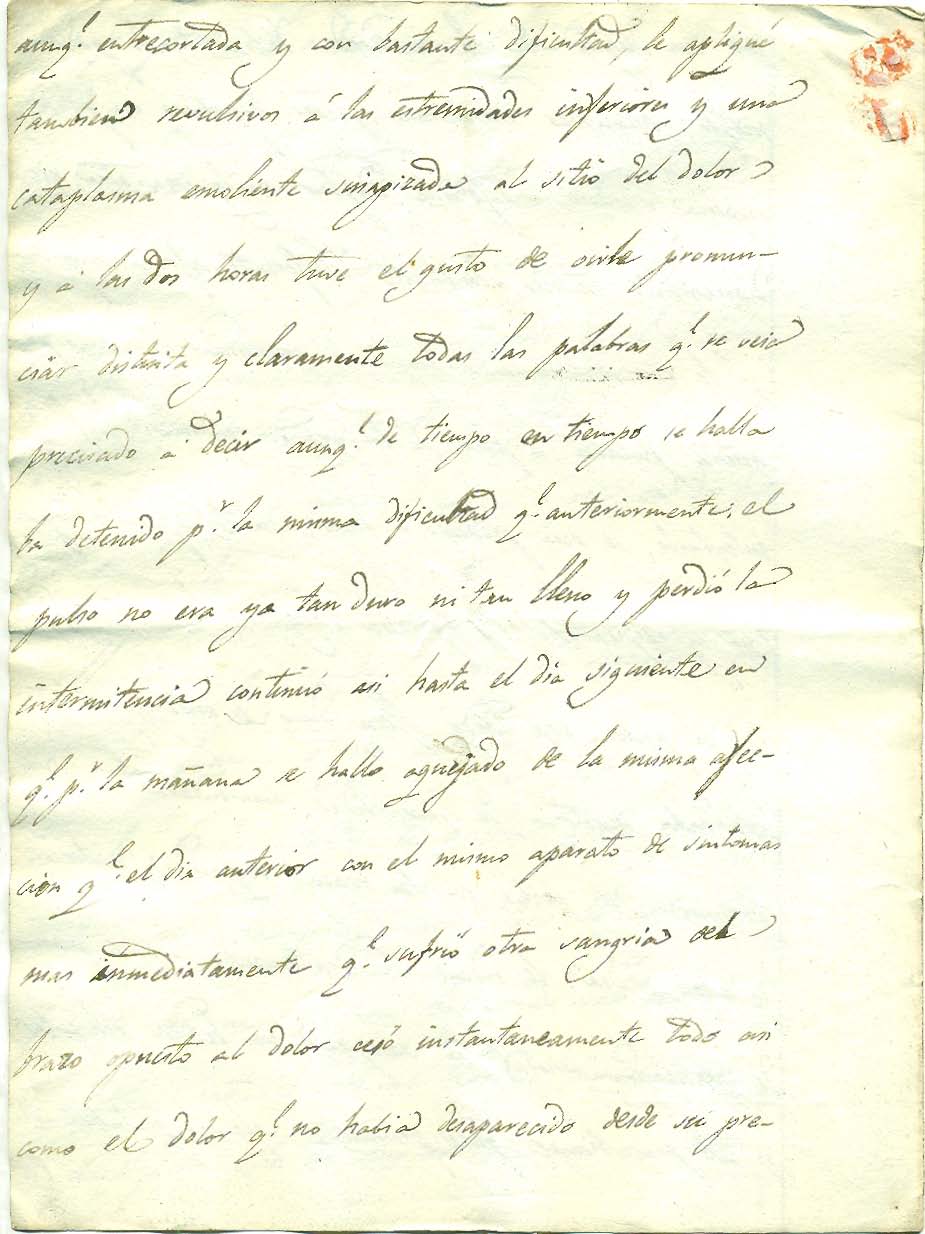 aunq.e entrecortada y con bastante dificultad, le apliqué
tambien revulsivos á las estremidades inferiores y una
cataplasma emoliente sinapizada al sitio del dolor
y á las dos horas tuve el gusto de oirle pronun-
ciar distinta y claramente todas las palabras q.e se veia
precisado á decir aunq.e de tiempo en tiempo se halla
ba detenido p.r la misma dificultad q.e anteriormente; el
pulso no era ya tan duro ni tan lleno y perdió la
intermitencia continuó asi hasta el dia siguiente en
q.e p.r la mañana se halló aquejado de la misma afec-
cion q.e el dia anterior con el mismo aparato de sintomas
mas inmediatamente q.e sufrió otra sangria del
brazo opuesto al dolor cesó instantaneamente todo asi
como el dolor q.e no habia desaparecido desde su pre-